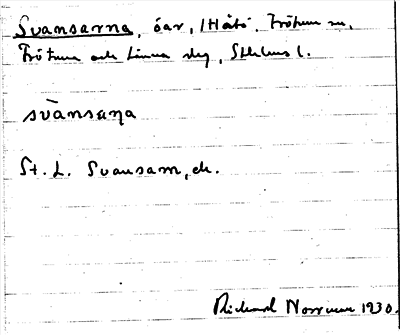 Svansarna, öar, i Håtö, Frötuna sn,
Frötuna och Länna skg, Sthlms l.
svànsaṇa
St. L. Svansarn, ek.
Rickard Norrman 1930.